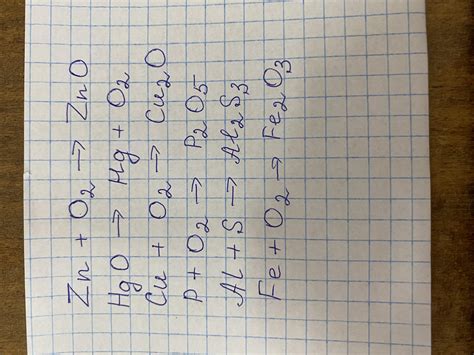 Zn + O2 → ZnO
HgO → Hg + O2
Cu + O2 → Cu2O
P + O2 → P2O5
Al + S → Al2S3
Fe + O2 → Fe2O3